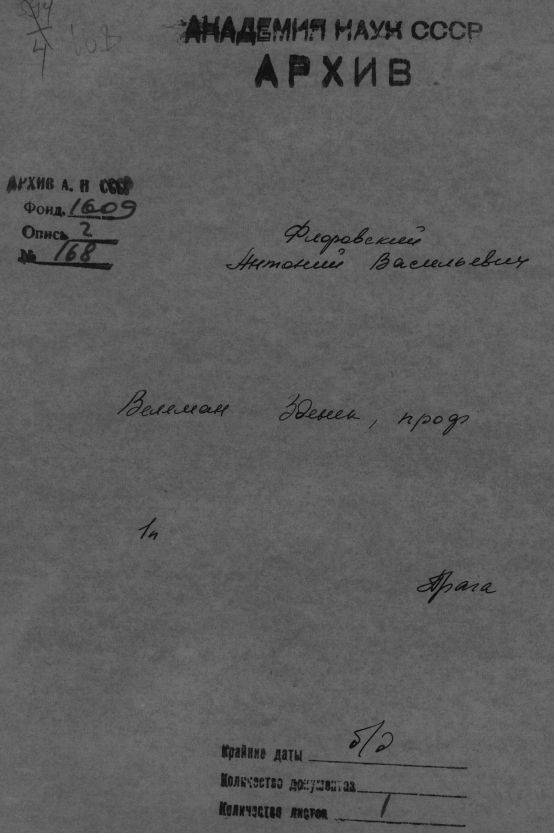 АКАДЕМИЯ НАУК СССР
АРХИВ
АРХИВ А. Н СССР
Фонд 1609
Опись 2
№ 168
Флоровский
Антоний Васильевич
Велеман Зденек, проф
1п
Прага
Крайние даты б/д
Количество документов
Количество листов 1